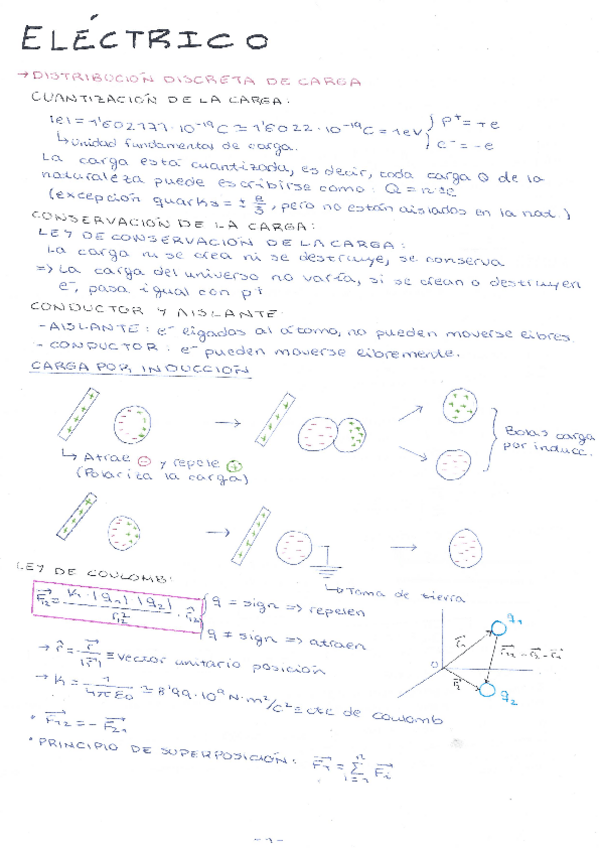 ELÉCTRICO
→ DISTRIBUCIÓN DISCRETA DE CARGA
CUANTIZACIÓN DE LA CARGA:
|e| = 1'602177·10⁻¹⁹C ≃ 1'6022·10⁻¹⁹C = 1eV } p⁺ = +e
↳ unidad fundamental de carga. } e⁻ = -e
La carga está cuantizada, es decir, toda carga Q de la
naturaleza puede escribirse como: Q = n±e
(excepción quarks = ± e/3, pero no están aislados en la nat.)
CONSERVACIÓN DE LA CARGA:
LEY DE CONSERVACIÓN DE LA CARGA:
La carga ni se crea ni se destruye, se conserva
=> La carga del universo no varía, si se crean o destruyen
e⁻, pasa igual con p⁺
CONDUCTOR Y AISLANTE
- AISLANTE: e⁻ ligados al átomo, no pueden moverse libres.
- CONDUCTOR: e⁻ pueden moverse libremente.
CARGA POR INDUCCIÓN
↳ Atrae ⊖ y repele ⊕
(Polariza la carga)
Bolas carga
por inducc.
↳ Toma de tierra
LEY DE COULOMB:
F₁₂ = K·|q₁|·|q₂| / r₁₂² · r̂₁₂
q = sign => repelen
q ≠ sign => atraen
→ r̂ = r⃗/|r⃗| ≡ vector unitario posición
→ K = 1/4πε₀ ≃ 8'99·10⁹ N·m²/C² ≡ cte de coulomb
q₁
r⃗₁
r⃗₁₂ = r⃗₂ - r⃗₁
0
r⃗₂
q₂
· F⃗₁₂ = - F⃗₂₁
· PRINCIPIO DE SUPERPOSICIÓN: F⃗₁ = Σ F⃗ᵢ
- 1 -